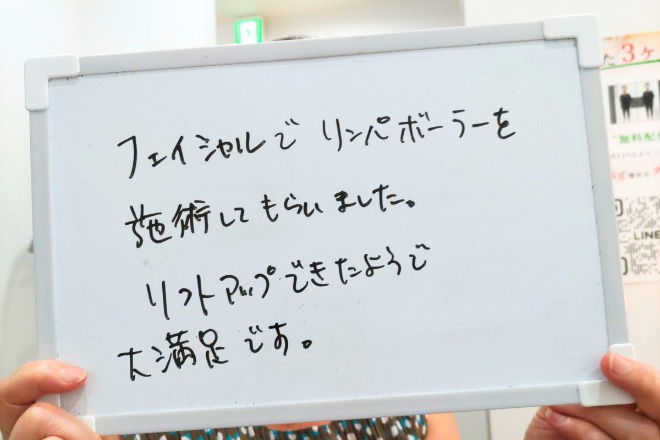 フェイシャルで リンパボーラーを
施術してもらいました。
リフトアップできたようで
大満足です。
た3ケ
無料配
LINE